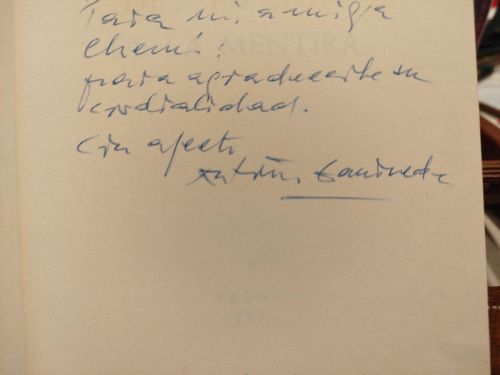 Para mi amiga
MENTIRA
para agradecerle su
cordialidad.
Con afecto
Antonio Gamoneda
LEON
1977